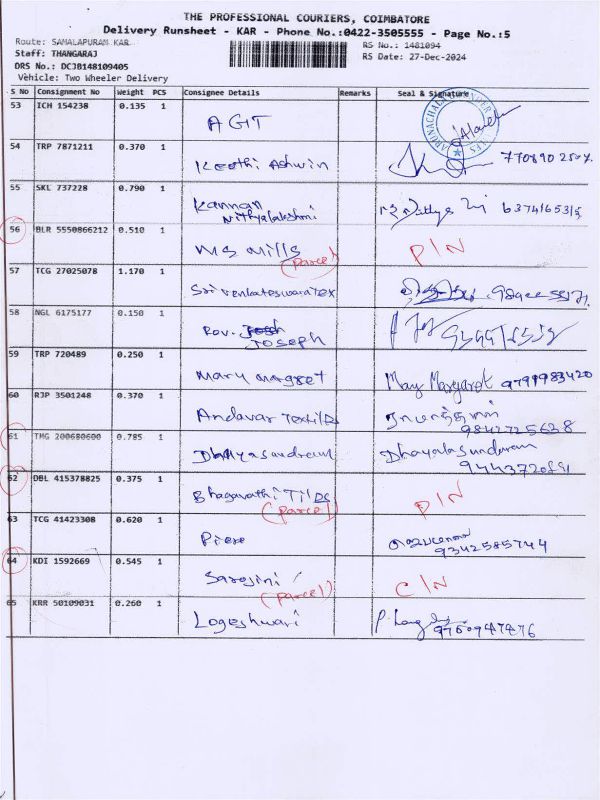 THE PROFESSIONAL COURIERS, COIMBATORE
Delivery Runsheet - KAR - Phone No.:0422-3505555 - Page No.:5
Route: SAMALAPURAM KAR
RS No.: 1481094
Staff: THANGARAJ
RS Date: 27-Dec-2024
DRS No.: DCJB148109405
Vehicle: Two Wheeler Delivery
S No Consignment No Weight PCS Consignee Details Remarks Seal & Signature
53 ICH 154238 0.135 1
AGIT
54 TRP 7871211 0.370 1
Keethi Ashwin
55 SKL 737228 0.790 1
Kannan
Nithyalakshmi 6374165315
56 BLR 5550866212 0.510 1
MS Mills P/N
(Parcel)
57 TCG 27025078 1.170 1
Sri Venkateswara Tex
58 NGL 6175177 0.150 1
Rev.
Joseph
59 TRP 720489 0.250 1
Mary Margret May Margarot 9791983420
60 RJP 3501248 0.370 1
Andavar
9842725638
61 TMG 200680600 0.785 1
Dhayalasundaram
62 DBL 415378825 0.375 1
Bhagavathi Tiles P/N
(Parcel)
63 TCG 41423308 0.620 1
9342585744
64 KDI 1592669 0.545 1
Sarojini C/N
(Parcel)
65 KRR 50109031 0.260 1
Logeshwari 9760947476